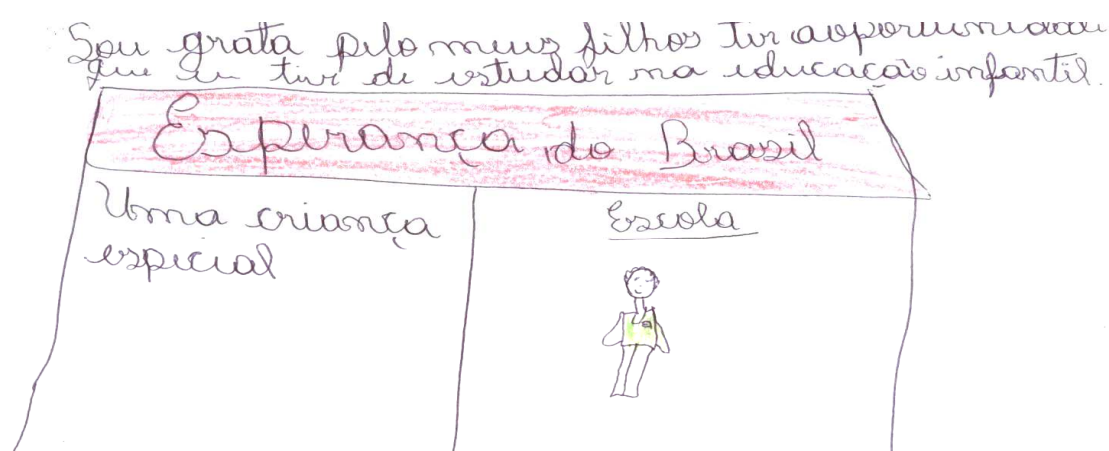 Sou grata pelo meus filhos Ter a oportunidade
que eu tive de estudar na educação infantil.
Esperança do Brasil
Uma criança
especial
Escola